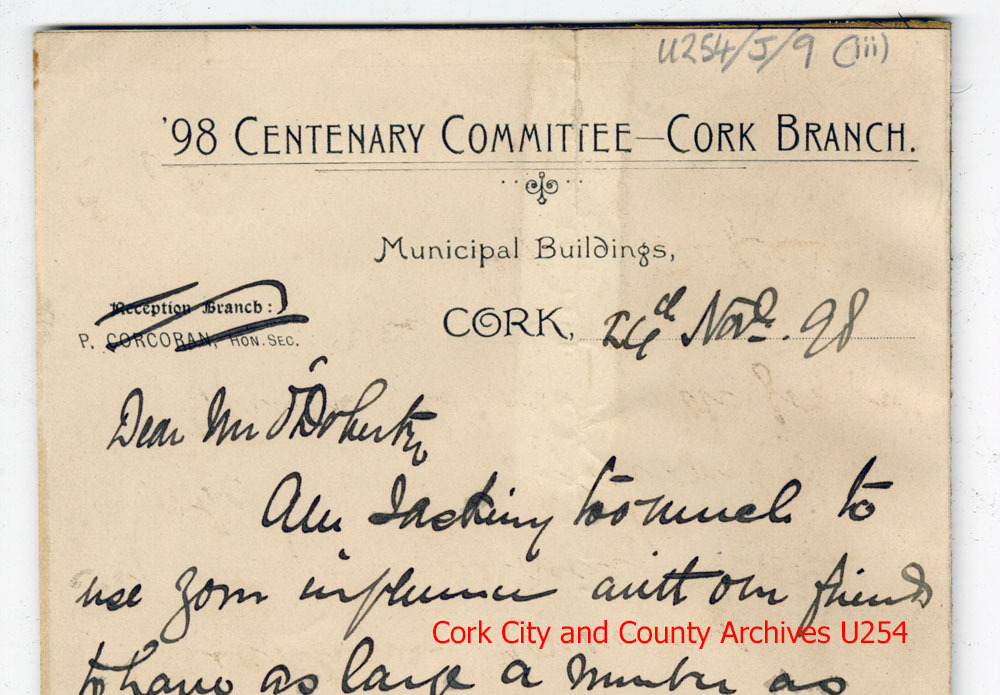 U254/J/9 (iii)
'98 CENTENARY COMMITTEE—CORK BRANCH.
Municipal Buildings,
Reception Branch:
CORK, 24th Novr. 98
P. CORCORAN, HON. SEC.
Dear Mr O'Doherty
Am I asking too much to
use your influence with our friends
Cork City and County Archives U254
to have as large a number as